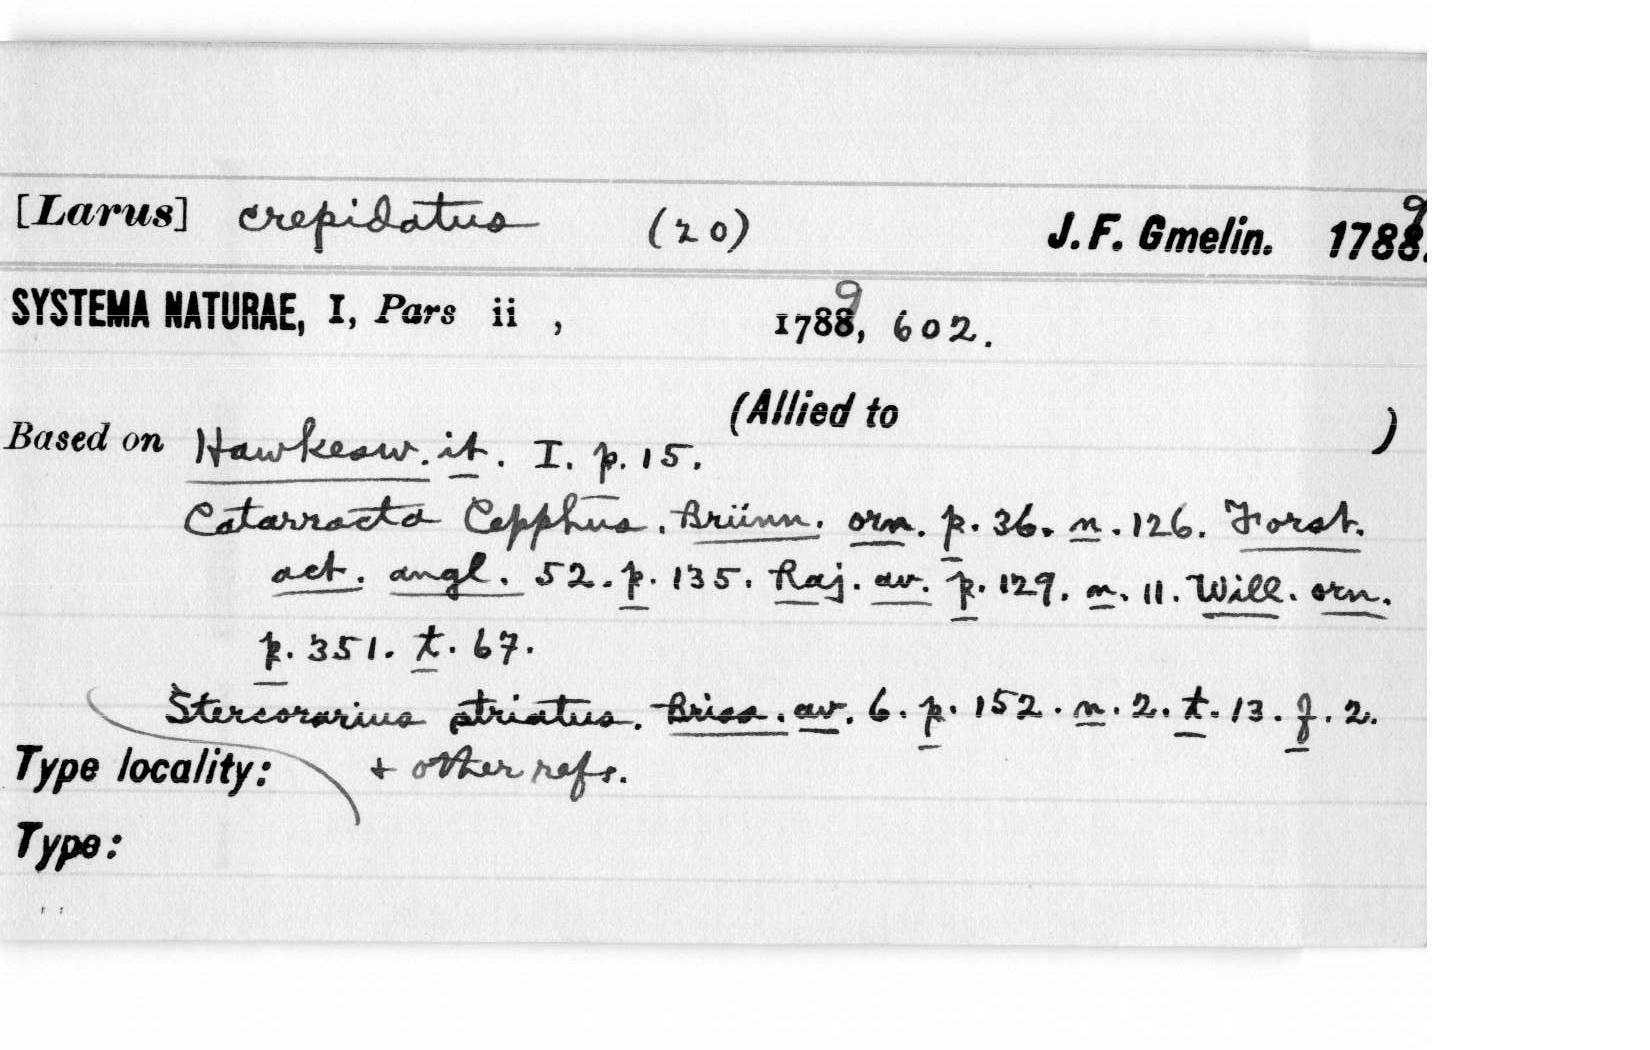 [Larus] crepidatus (20) J. F. Gmelin. 1789.
SYSTEMA NATURAE, I, Pars ii , 1789, 602.
(Allied to )
Based on Hawkesw. it. I. p. 15.
Catarracta Cepphus. Brünn. orn. p. 36. n. 126. Forst.
act. angl. 52. p. 135. Raj. av. p. 129. n. 11. Will. orn.
p. 351. t. 67.
Stercorarius striatus. Briss. av. 6. p. 152. n. 2. t. 13. f. 2.
Type locality: + other refs.
Type: